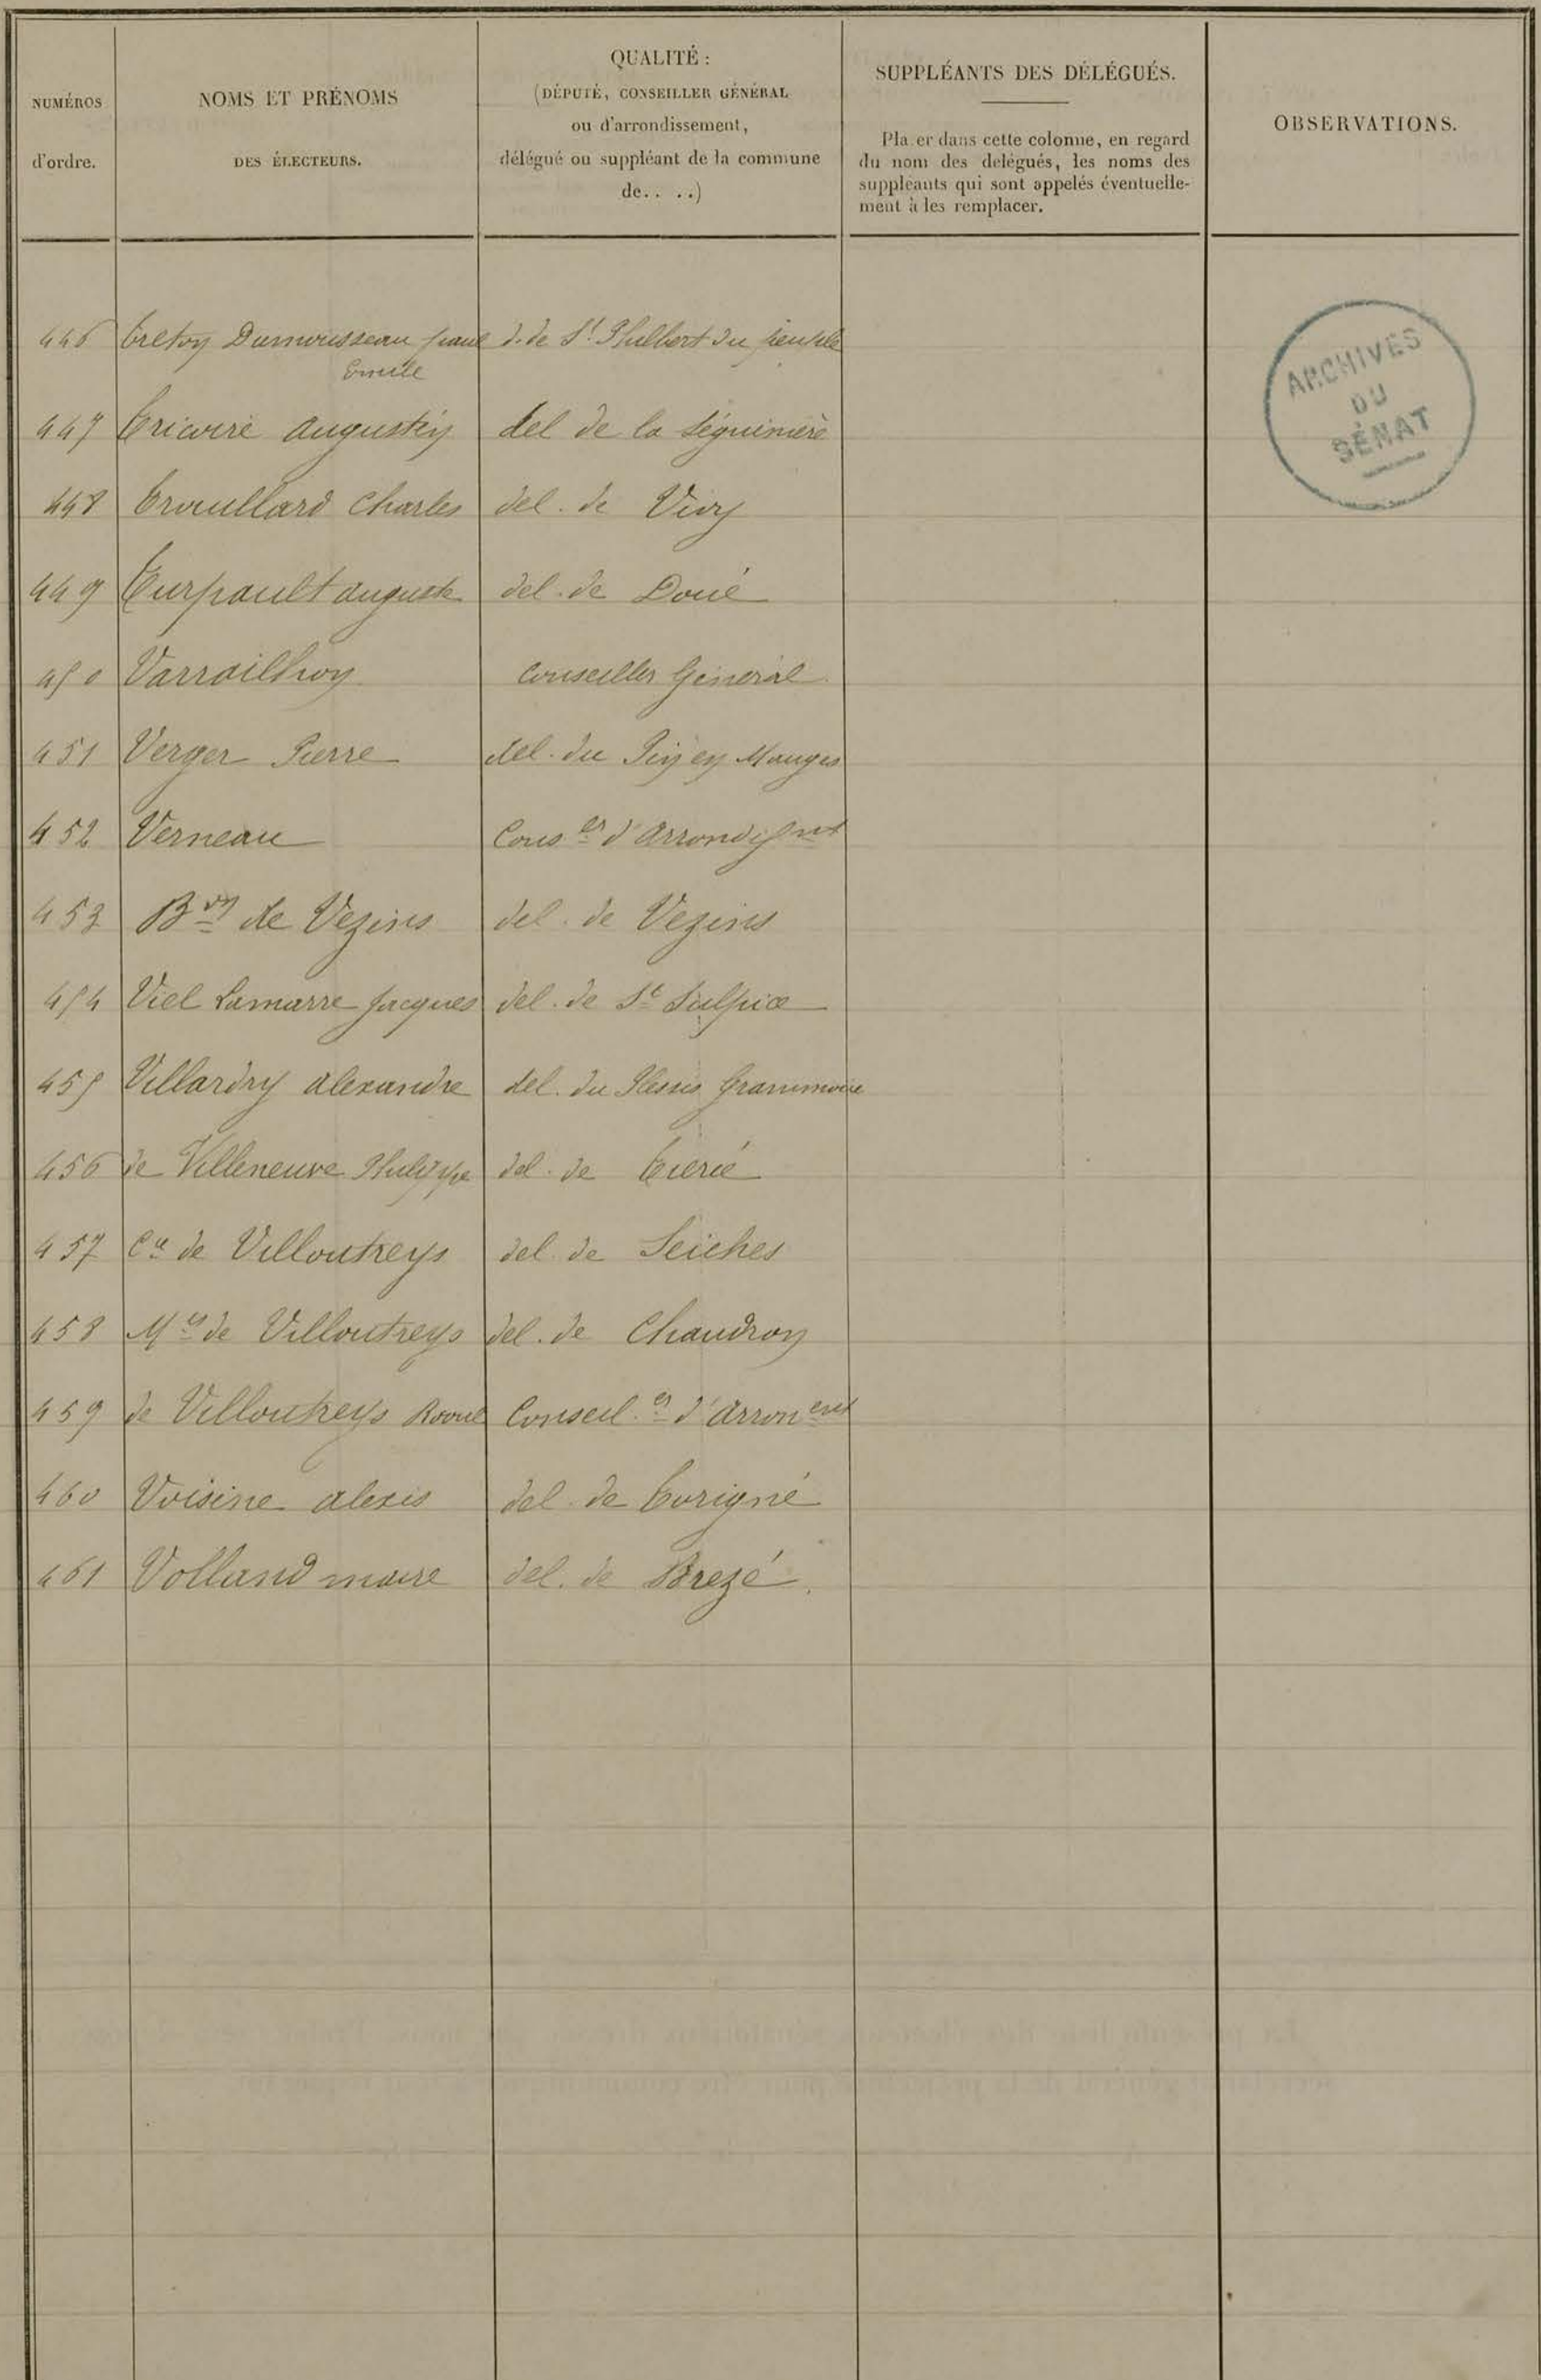 NUMÉROS d'ordre.
NOMS ET PRÉNOMS DES ÉLECTEURS.
QUALITÉ :
(DÉPUTÉ, CONSEILLER GÉNÉRAL
ou d'arrondissement,
délégué ou suppléant de la commune
de.. ..)
SUPPLÉANTS DES DÉLÉGUÉS.
Pla er dans cette colonne, en regard
du nom des délégués, les noms des
suppléants qui sont appelés éventuelle-
ment à les remplacer.
OBSERVATIONS.
446 Treton Dumousseau paul d. de St Philbert du peuple
Emile
447 Tricoire Augustin del de la Séguinière
448 Trouillard Charles del. de Vivy
449 Turpault auguste del. de Doué
450 Varrailhon Conseiller Général
451 Verger Pierre del. du Pin en Mauges
452 Verneau Cons.er d'Arrondissmt
453 Bon de Vezins del. de Vezins
454 Viel Lamarre Jacques del. de St Sulpice
455 Villardry alexandre del. du Plessis Grammoire
456 de Villeneuve Philippe del. de Tiercé
457 Cte de Villoutreys del de Seiches
458 Mis de Villoutreys del. de Chaudron
459 de Villoutreys Raoul Conseil.er d'Arronent
460 Voisine alexis del. de Corigné
461 Volland maire del. de Brezé.
ARCHIVES
DU
SÉNAT